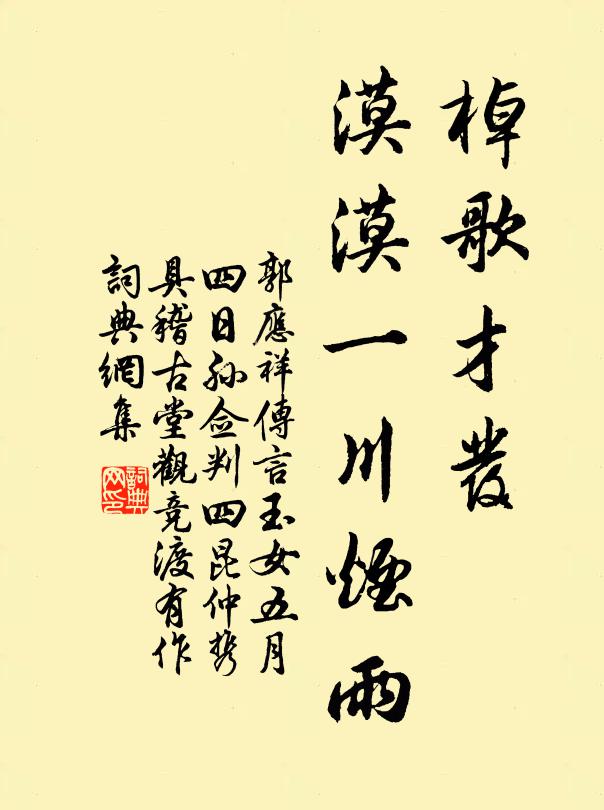 棹歌才發
漠漠一川煙雨
郭應祥傳言玉女五月
四日孙佥判四昆仲携
具稽古堂觀竞渡有作
詞典網集
詞典
网印